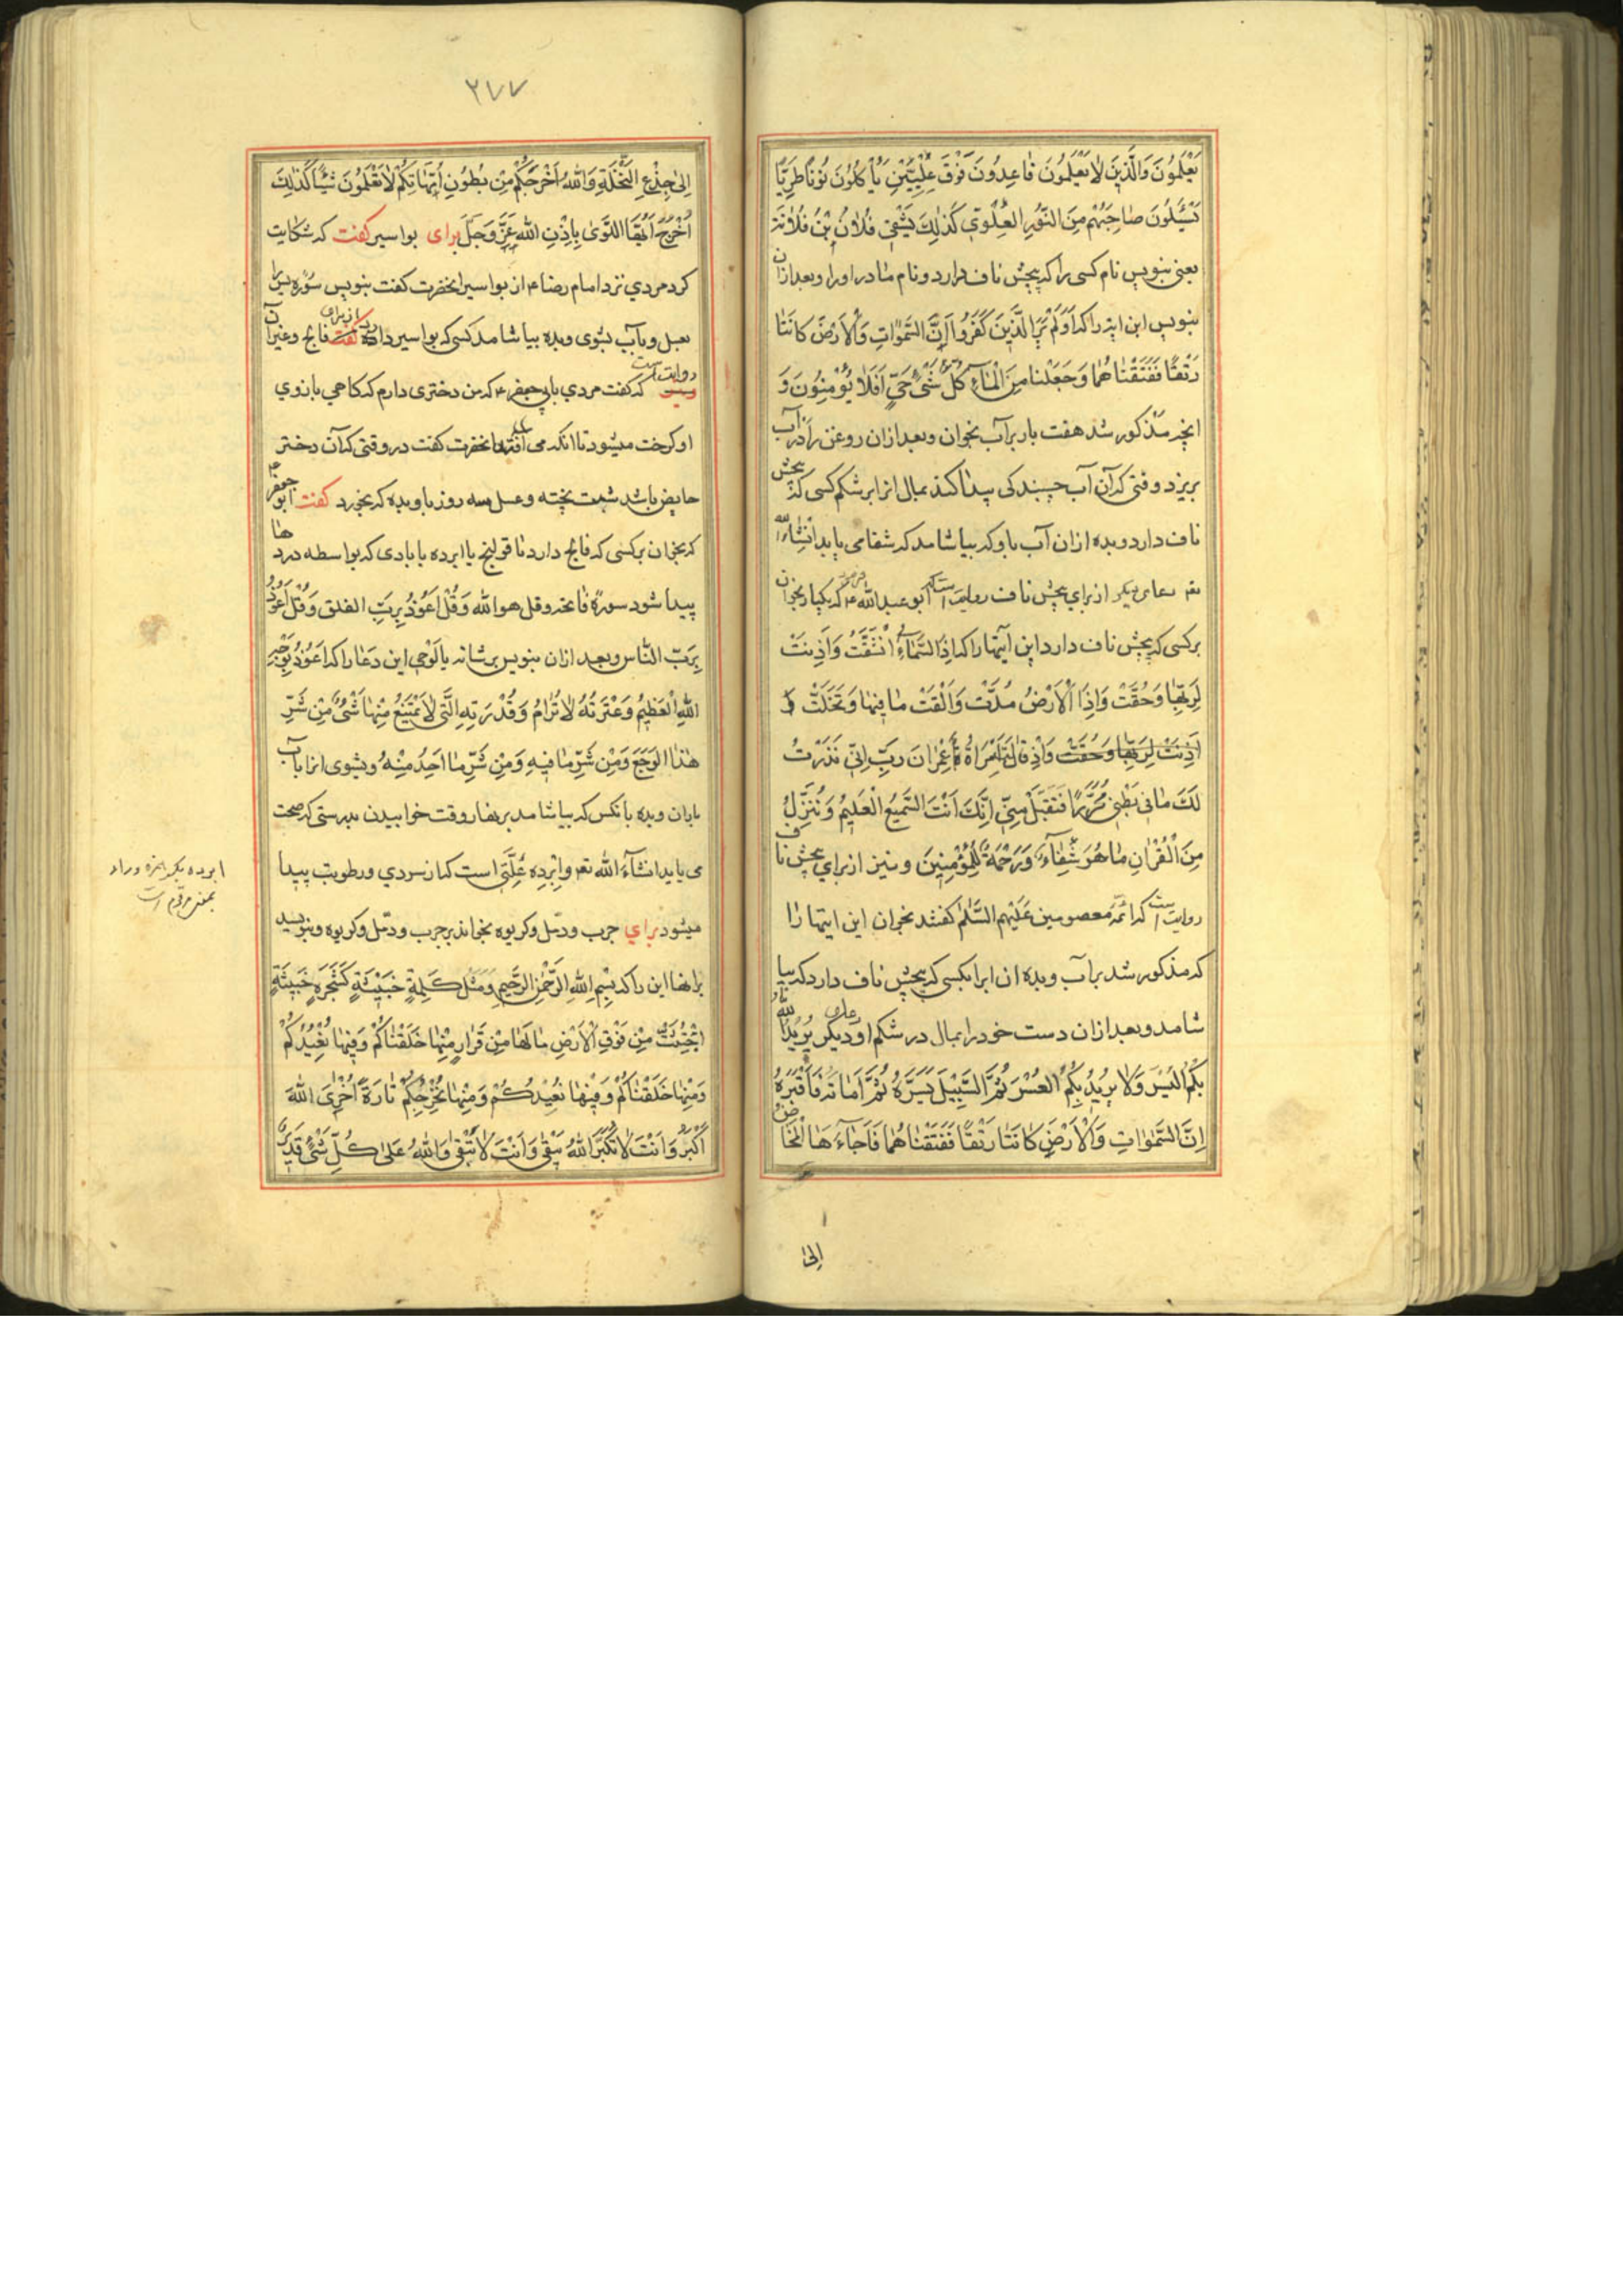 يَعْلَمُونَ وَالَّذِينَ لَا يَعْلَمُونَ قَاعِدُونَ فَوْقَ عِلِّيِّينَ يَأْكُلُونَ نُونًا طَرِيًّا
يَسْئَلُونَ صَاحِبَهُمْ مِنَ النُّورِ العُلْوِيِّ كَذٰلِكَ يَشْفِي فُلَانُ بْنُ فُلَانَةَ
يعنى بنويس نام كسى را كه پيچش ناف دارد و نام مادر او را و بعد ازان
بنويس اين ايه را كه اَوَلَمْ يَرَ الَّذِينَ كَفَرُوا اَنَّ السَّمٰوَاتِ وَالْاَرْضَ كَانَتَا
رَتْقًا فَفَتَقْنَاهُمَا وَجَعَلْنَا مِنَ الْمَآءِ كُلَّ شَيْءٍ حَيٍّ اَفَلَا يُؤْمِنُونَ وَ
انچه مذكور شد هفت بار بر آب بخوان و بعد ازان روغن را در آب
بريزد وقتى كه آن آب چسبندكى پيدا كند بمال انرا بر شكم كسى كه پيچش
ناف دارد و بده ازان آب باو كه بياشامد كه شفا مى يابد انشاءالله
تعـ دعاى ديكر از براى پيچش ناف روايت است كه ابو عبد الله ع كه يكبار بخوان
بر كسى كه پيچش ناف دارد اين آيتها را كه اِذَا السَّمَآءُ انْشَقَّتْ وَاَذِنَتْ
لِرَبِّهَا وَحُقَّتْ وَاِذَا الْاَرْضُ مُدَّتْ وَاَلْقَتْ مَا فِيهَا وَتَخَلَّتْ وَ
اَذِنَتْ لِرَبِّهَا وَحُقَّتْ وَاِذْ قَالَتِ امْرَاَةُ عِمْرَانَ رَبِّ اِنِّي نَذَرْتُ
لَكَ مَا فِي بَطْنِي مُحَرَّرًا فَتَقَبَّلْ مِنِّي اِنَّكَ اَنْتَ السَّمِيعُ الْعَلِيمُ وَنُنَزِّلُ
مِنَ الْقُرْاٰنِ مَا هُوَ شِفَآءٌ وَرَحْمَةٌ لِلْمُؤْمِنِينَ و نيز از براى پيچش ناف
روايت است كه ائمّهٔ معصومين عَلَيْهِمُ السَّلَامُ كفتند بخوان اين ايتها را
كه مذكور شد بر آب و بده ان ابرا بكسى كه پيچش ناف دارد كه بيا
شامد و بعد ازان دست خود را بمال در شكم او دعاى ديكر يُرِيدُ اللهُ
بِكُمُ اليُسْرَ وَلَا يُرِيدُ بِكُمُ العُسْرَ ثُمَّ السَّبِيلَ يَسَّرَهُ ثُمَّ اَمَاتَهُ فَاَقْبَرَهُ
اِنَّ السَّمٰوَاتِ وَالْاَرْضَ كَانَتَا رَتْقًا فَفَتَقْنَاهُمَا فَاَجَآءَهَا الْمَخَاضُ
اِلىٰ
٢٧٧
اِلىٰ جِذْعِ النَّخْلَةِ وَاللهُ اَخْرَجَكُمْ مِنْ بُطُونِ اُمَّهَاتِكُمْ لَا تَعْلَمُونَ شَيْئًا كَذٰلِكَ
اُخْرُجْ اَيُّهَا اللَّوَىٰ بِاِذْنِ اللهِ عَزَّ وَجَلَّ براى بواسير كفت كه شكايت
كرد مردي نزد امام رضا ع از بواسير انحضرت كفت بنويس سُورهٔ يس را
بعسل و بآب بشوى و بده بياشامد كسى كه بواسير دارد از براى فالج و غير آن
روايت است كه كفت مردي بابى جعفر ع كه من دخترى دارم كه كاهي بازوي
او كرخت ميشود تا انكه مى افتد انحضرت كفت در وقتى كه آن دختر
حايض باشد شبت پخته و عسل سه روز باو بده كه بخورد كفت ابو جعفر ع
كه بخوان بر كسى كه فالج دارد تا قولنج يا ابرده يا بادى كه بواسطه دردها
پيدا شود سورهٔ فاتحه و قل هو الله وَقُلْ اَعُوذُ بِرَبِّ الفلق وَقُلْ اَعُوذُ
بِرَبِّ النَّاس و بعد ازان بنويس بر شانه يا لَوْحِي اين دعا را كه اَعُوذُ بِوَجْهِ
اللهِ الْعَظِيمِ وَعِزَّتِهُ لَا تُرَامُ وَقُدْرَتِهِ الَّتِي لَا يَمْتَنِعُ مِنْهَا شَيْءٌ مِنْ شَرِّ
هٰذَا الوَجَعِ وَمِنْ شَرِّ مَا فِيهِ وَمِنْ شَرِّ مَا اَجِدُ مِنْهُ و بشوى انرا بآب
باران و بده بانكس كه بياشامد بر نهار وقت خوابيدن بدرستى كه صحت
مى يابد انشآءَ الله تعـ و اِبْرِدِه عِلَّتى است كه از سردي و رطوبت پيدا
ميشود براي جرب و دمّل و كريوه بخواند بر جرب و دمّل و كريوه و بنويسد
بر انها اين را كه بِسْمِ اللهِ الرَّحْمٰنِ الرَّحِيمِ وَمَثَلُ كَلِمَةٍ خَبِيثَةٍ كَشَجَرَةٍ خَبِيثَةٍ
اجْتُثَّتْ مِنْ فَوْقِ الْاَرْضِ مَا لَهَا مِنْ قَرَارٍ مِنْهَا خَلَقْنَاكُمْ وَفِيهَا نُعِيدُكُمْ
وَمِنْهَا خَلَقْنَاكُمْ وَفِيهَا نُعِيدُكُمْ وَمِنْهَا نُخْرِجُكُمْ تَارَةً اُخْرٰى اللهُ
اَكْبَرُ وَاَنْتَ لَا تَكْبَرُ اللهُ يَبْقىٰ وَاَنْتَ لَا تَبْقىٰ وَاللهُ عَلىٰ كُلِّ شَيْءٍ قَدِيرٌ
ابرده بكسر همزه و راء